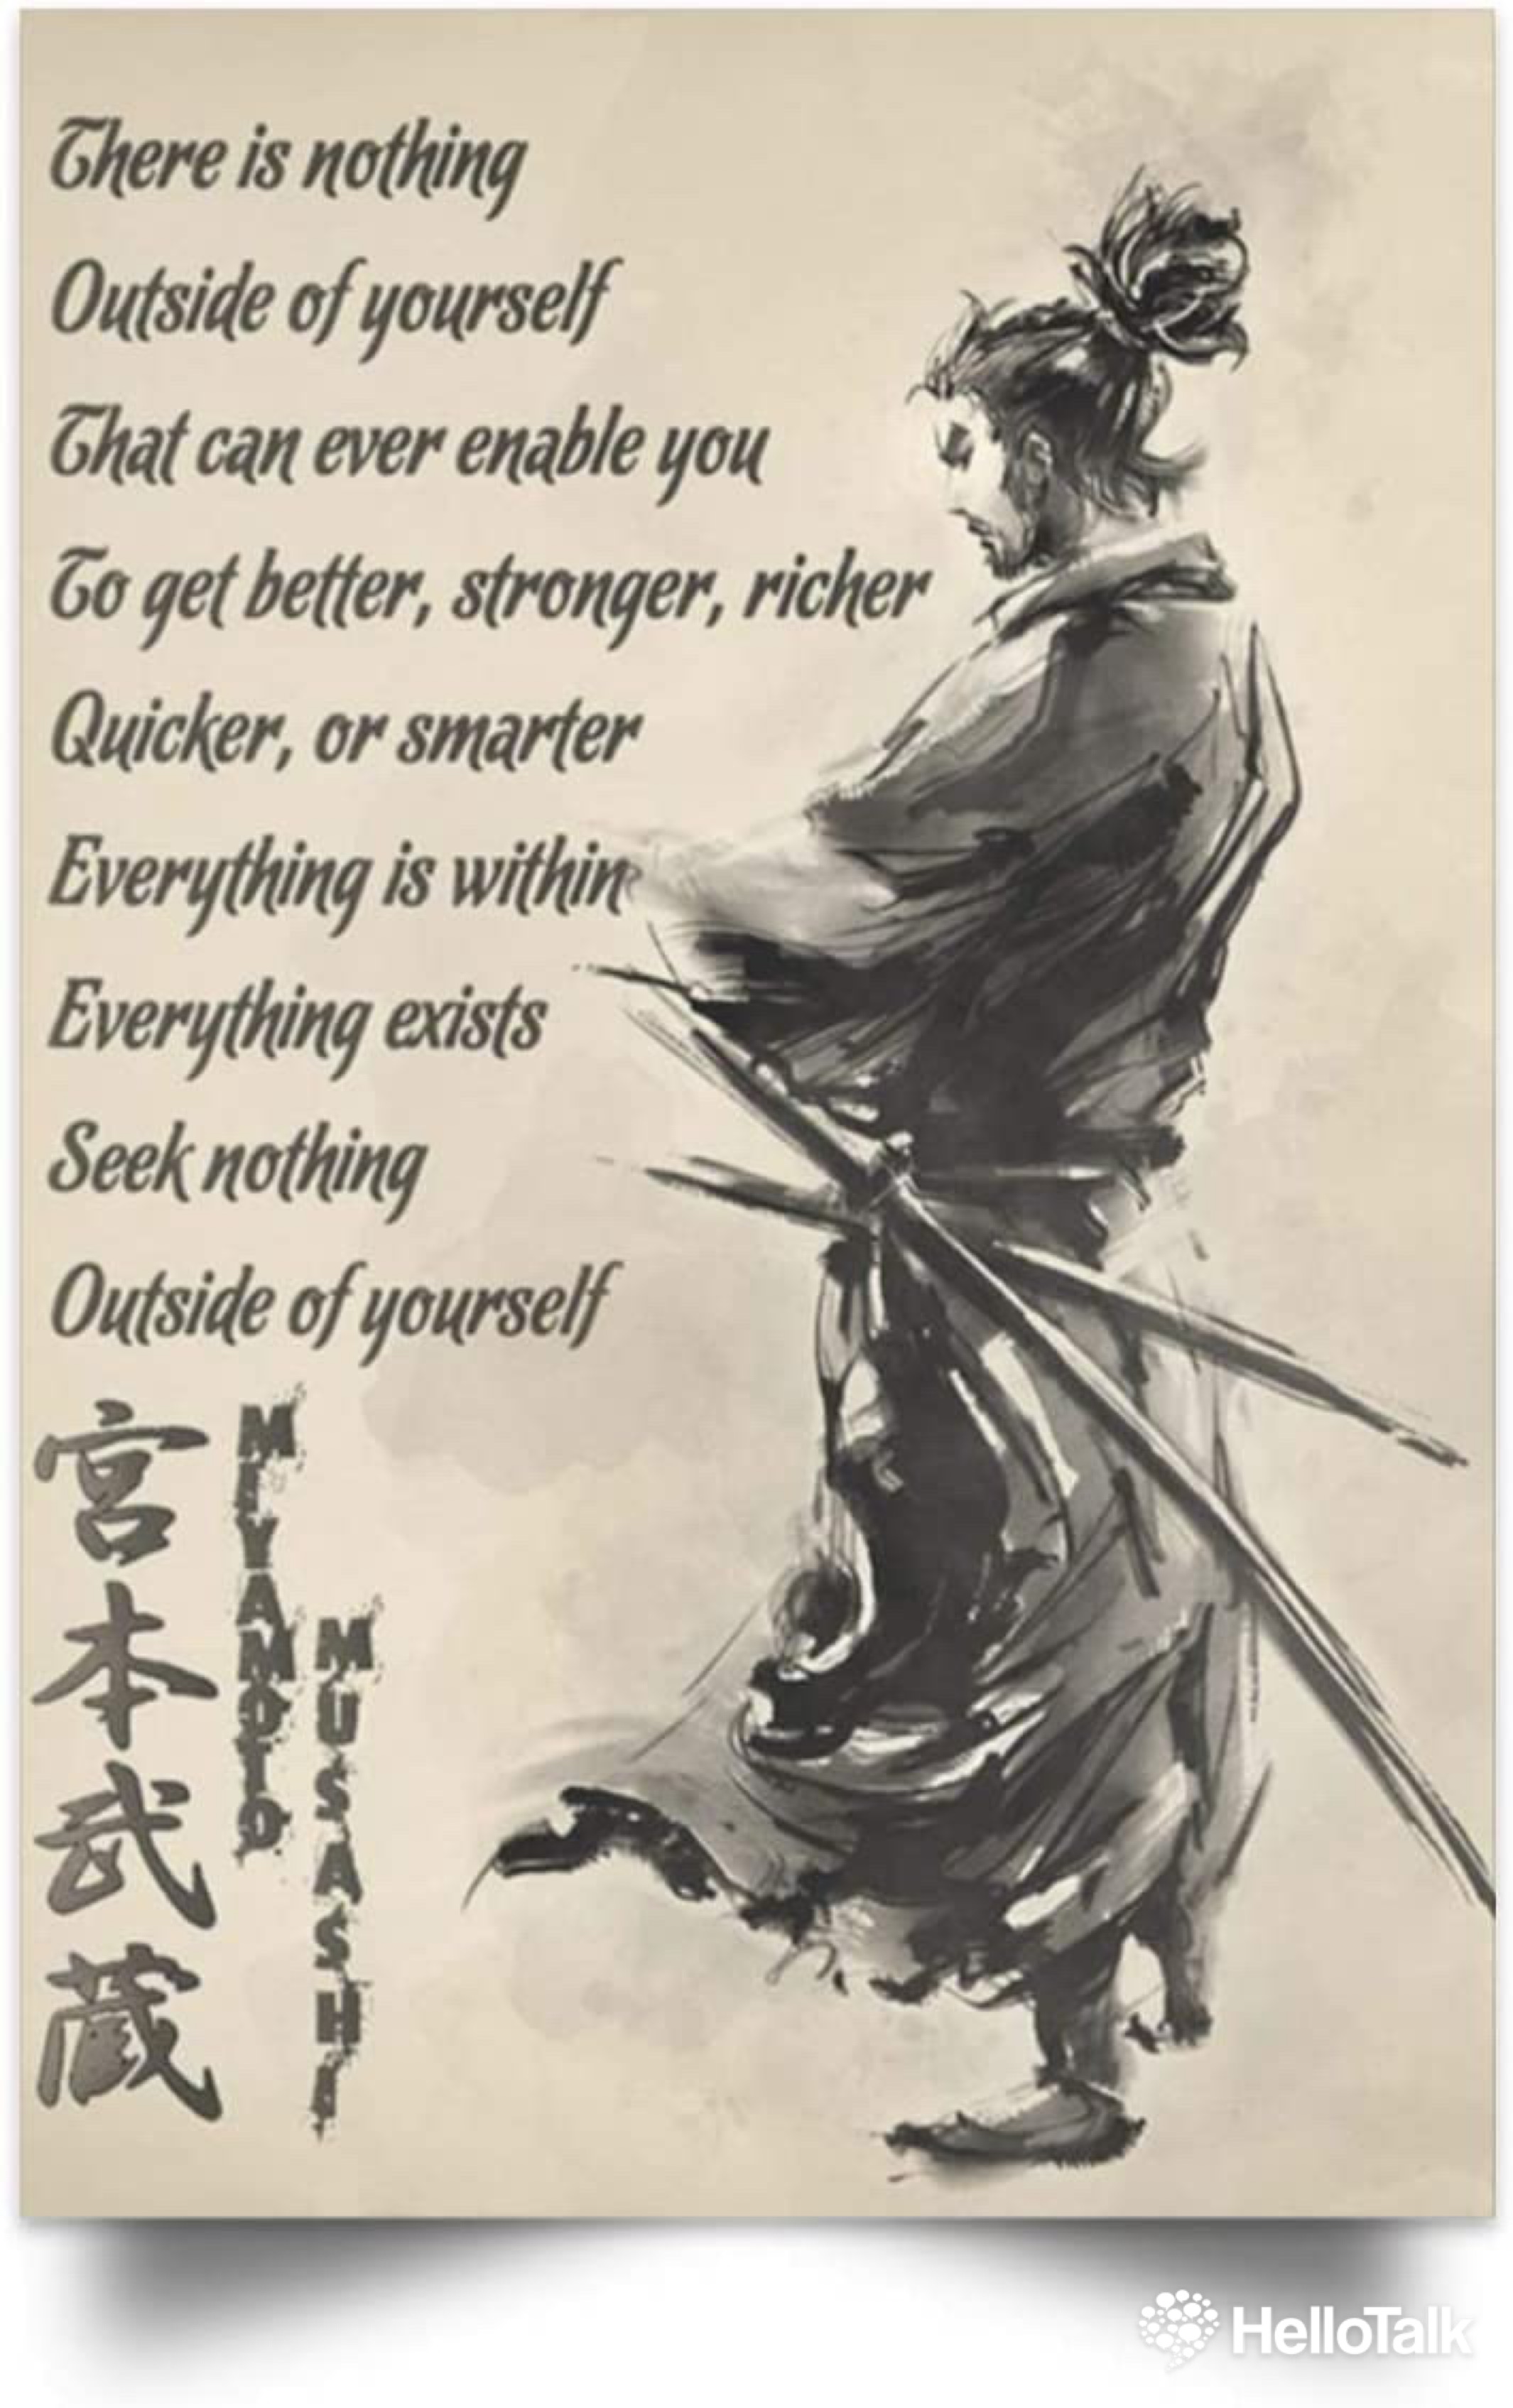 There is nothing
Outside of yourself
That can ever enable you
To get better, stronger, richer
Quicker, or smarter
Everything is within
Everything exists
Seek nothing
Outside of yourself
宮本武蔵
MIYAMOTO
MUSASHI
HelloTalk